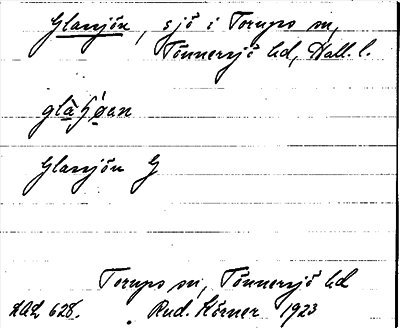 Glassjön, sjö i Torups sn,
Tönnersjö hd, Hall. l.
Glassjön G
Torups sn, Tönnersjö hd
Rud. Körner 1923